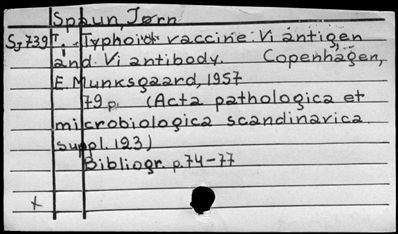 Spaun, Jørn
Sj 739 Typhoid vaccine: Vi antigen,
and Vi antibody. Copenhagen,
E. Munksgaard, 1957
79 p. (Acta pathologica et
microbiologica scandinavica.
Suppl. 123)
Bibliogr. p. 74-77
x